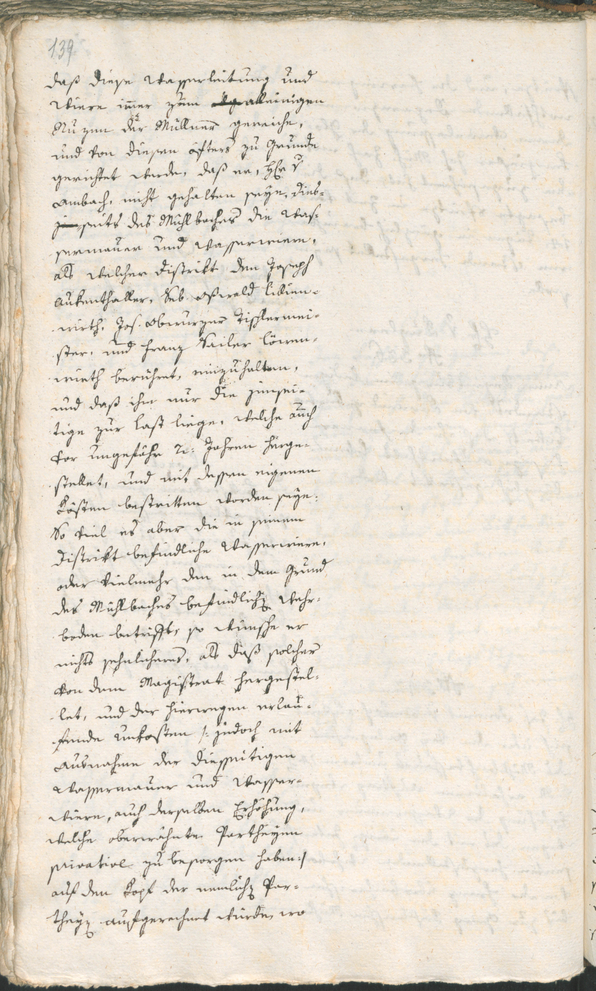 139
daß diese Wasserleitung und
Wiere immer zum alleinigen
Nuzen der Müllner gereiche,
und von diesen öfters zu Grunde
gerichtet werde, daß er, Hr
Ambach, nicht gehalten seye, dies-
seits des Mühlbaches die Was-
sermauer und Wasserwiere,
als welcher Distrikt den Joseph
Aukenthaller, Seb. Oßwald Lilien-
wirth, Jos. Obwurzer Tischlermei-
ster, und Franz Sailer Löwen-
wirth berühret, einzuhalten,
und daß ihm nur die jensei-
tige zur Last liege, welche auch
vor ungefähr 2: Jahren herge-
stellet, und mit dessen eigenen
Kösten bestritten worden seye:
So viel es aber die in seinem
Distrikt befindliche Wasserwiere,
oder vielmehr den in dem Grund
des Mühlbaches befindlich Wehr-
boden betrifft, so wünsche er
nichts sehnlicheres, als daß solcher
von dem Magistrat hergestel-
let, und der hierwegen erlau-
fende Unkosten /: jedoch mit
Ausnahme der diesseitigen
Wassermauer und Wasser-
wiere, auch derselben Erhöhung,
welche oberwähnte Partheyen
privative zu besorgen haben :/
auf den Kopf der nemlich Par-
theyen aufgerechnet würde, wo